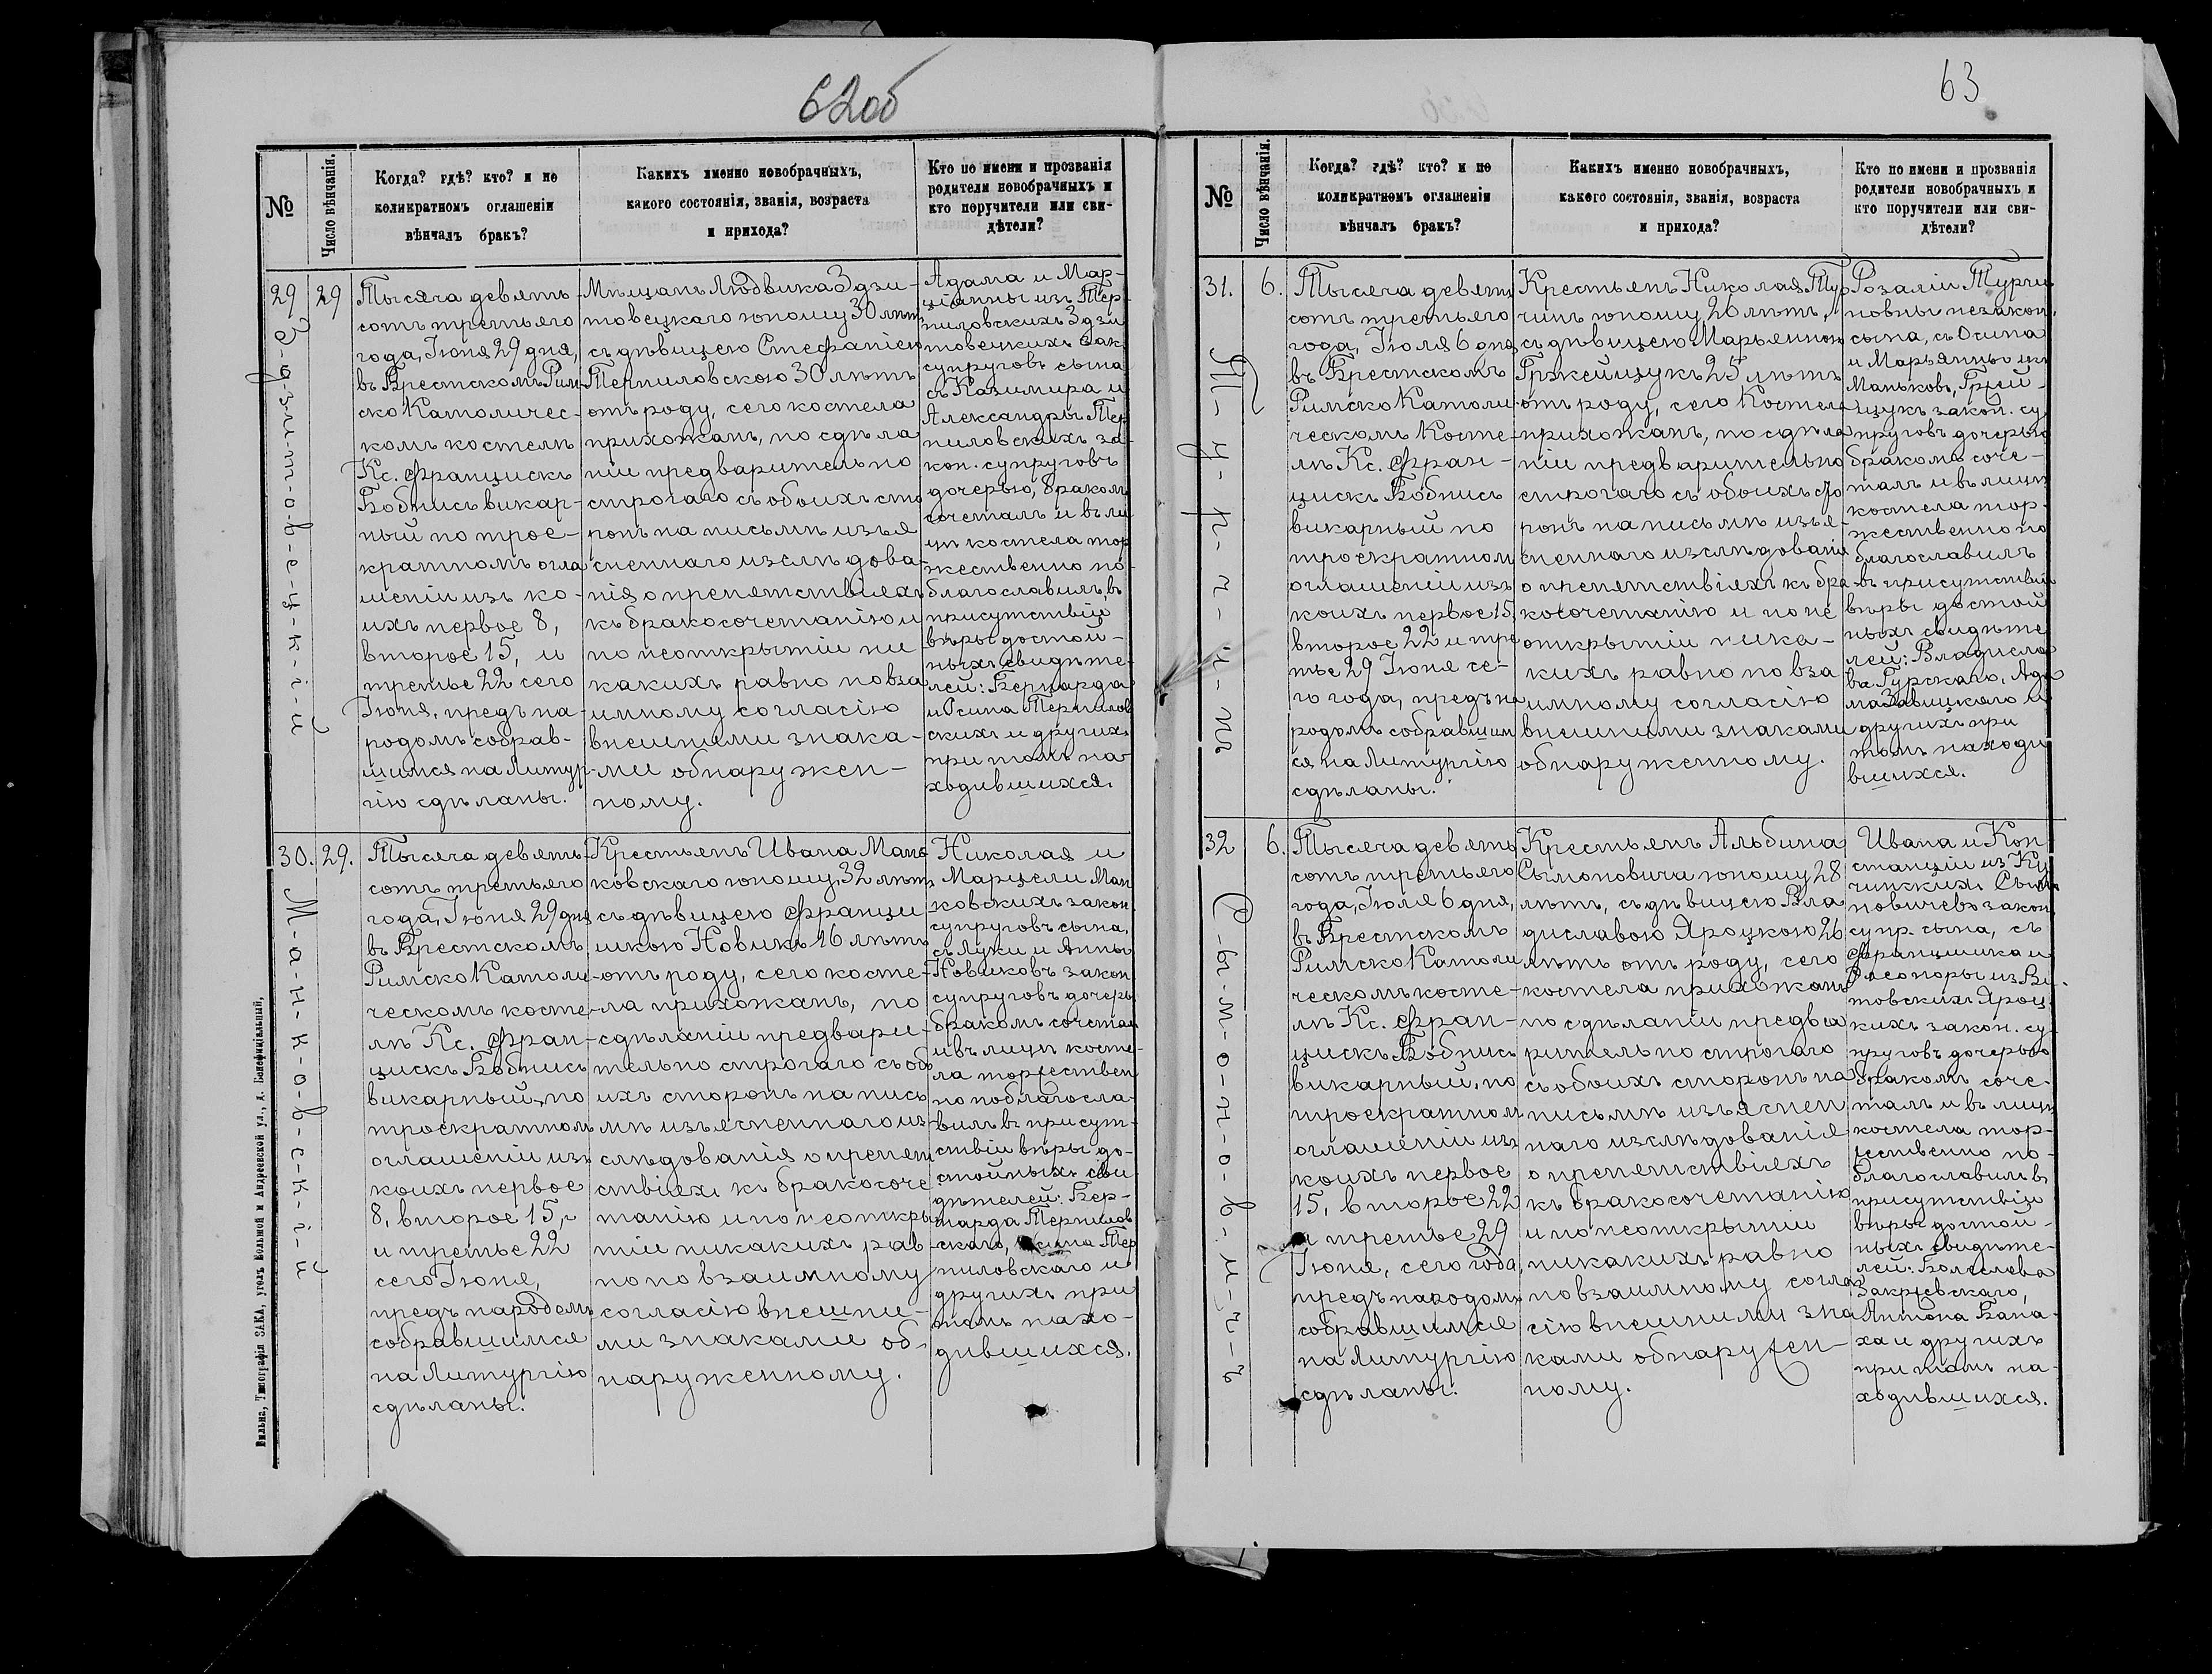 62об
№
Число вѣнчанія.
Когда? гдѣ? кто? и по
коликратномъ оглашеніи
вѣнчалъ бракъ?
Какихъ именно новобрачныхъ,
какого состоянія, званія, возраста
и прихода?
Кто по имени и прозванія
родители новобрачныхъ и
кто поручители или сви-
дѣтели?
29
29
Э-д-з-и-т-о-в-е-ц-к-і-й
Тысяча девять-
сотъ третьяго
года, Іюня 29 дня,
въ Брестскомъ Рим-
ско Католичес-
комъ костелѣ
Кс. Францискъ
Бобнисъ викар-
ный по трое-
кратномъ огла
шеніи изъ ко-
ихъ первое 8,
второе 15, и
третье 22 сего
Іюня, предъ на-
родомъ собрав-
шимся на Литур-
гію сдѣланы.
Мѣщанъ Людвика Эдзи-
товецкаго юношу 30 лѣтъ
съ дѣвицею Стефаніею
Терпиловскою 30 лѣтъ
отъ роду, сего костела
прихожанъ, по сдѣла
ніи предварительно
строгаго съ обоихъ сто
ронъ на письмѣ изъя
сненнаго изслѣдова-
нія о препятствіяхъ
къ бракосочетанію и
по неоткрытіи ни
какихъ равно по вза
имному согласію
внешними знака-
ми обнаружен-
ному.
Адама и Мар-
ціанны изъ Тер-
пиловскихъ Эдзи
товецкихъ зак.
супруговъ сына
съ Казимира и
Александры Тер
пиловскихъ за-
кон. супруговъ
дочерью, бракомъ
сочеталъ и въ ли
цѣ костела тор
жественно по-
благославилъ, въ
присутствіи
вѣры достой-
ныхъ свидѣте-
лей: Бернарда
и Осипа Терпилов
скихъ и другихъ
при томъ на-
ходившихся.
30.
29.
М-а-н-к-о-в-с-к-і-й
Тысяча девять-
сотъ третьяго
года, Іюня 29 дня
въ Брестскомъ
Римско Католи-
ческомъ косте-
лѣ Кс. Фран-
цискъ Бобнисъ
викарный, по
троекратномъ
оглашеніи изъ
коихъ первое
8, второе 15,
и третье 22
сего Іюня,
предъ народомъ
собравшимся
на Литургію
сдѣланы.
Крестьянъ Ивана Мань-
ковскаго юношу, 32 лѣтъ
съ дѣвицею Франци
шкою Новикъ 16 лѣтъ
отъ роду, сего косте-
ла прихожанъ, по
сдѣланіи предвари-
тельно строгаго съ обо
ихъ сторонъ на пись
мѣ изъясненнаго из
слѣдованія о препят
ствіяхъ къ бракосоче
танію и по неоткры
тіи никакихъ рав
но по взаимному
согласію внешни-
ми знаками об-
наруженному.
Николая и
Марцели Ман
ковскихъ закон
супруговъ сына,
съ Луки и Анны
Новиковъ закон
супруговъ дочерь
бракомъ сочетал
и въ лицѣ косте-
ла торжествен
но поблагосла-
вилъ въ присут-
ствіи вѣры до-
стойныхъ сви
дѣтелей: Бер-
нарда Терпилов
скаго, Осипа Тер
пиловскаго и
другихъ при
томъ нахо-
дившихся.
Вильна, Типографія ЗАКА, уголъ Большой и Андреевской ул., д. Бенефиціальный,
63
№
Число вѣнчанія.
Когда? гдѣ? кто? и по
коликратномъ оглашеніи
вѣнчалъ бракъ?
Какихъ именно новобрачныхъ,
какого состоянія, званія, возраста
и прихода?
Кто по имени и прозванія
родители новобрачныхъ и
кто поручители или сви-
дѣтели?
31.
6.
Т-у-р-ч-и-нъ
Тысяча девять
сотъ третьяго
года, Іюля 6 дня
въ Брестскомъ
Римско Католи-
ческомъ Косте-
лѣ Кс. Фран-
цискъ Бобнисъ
викарный по
троекратном
оглашеніи изъ
коихъ первое 15,
второе 22 и тре
тье 29 Іюня се-
го года, предъ на
родомъ собравшим
ся на Литургію
сдѣланы.
Крестьянъ Николая Тур
чинъ юношу 26 лѣтъ,
съ дѣвицею Марьянною
Гржейщукъ 25 лѣтъ
отъ роду, сего Костела
прихожанъ, по сдѣла
ніи предварительно
строгаго съ обоихъ сто
ронъ на письмѣ изъя-
сненнаго изслѣдованія
о препятствіяхъ къ бра-
косочетанію и по не
открытіи ника-
кихъ равно по вза
имному согласію
внешними знаками
обнаруженному.
Розаліи Турчи
новны незакон.
сына, съ Осипа
и Марьянны изъ
Маньковъ, Гржей-
щукъ закон. су
пруговъ дочерью
бракомъ соче-
талъ и въ лицѣ
костела тор-
жественно по
благославилъ
въ присутствіи
вѣры достой
ныхъ свидѣте
лей: Владисла
ва Гурскаго, Ада
ма Савицкаго и
другихъ при
томъ находи
вшихся.
32
6.
С-ы-м-о-н-о-в-и-ч-ъ
Тысяча девять
сотъ третьяго
года, Іюля 6 дня,
въ Брестскомъ
Римско Католи
ческомъ косте-
лѣ Кс. Фран-
цискъ Бобнисъ
викарный, по
троекратном
оглашеніи изъ
коихъ первое
15, второе 22
и третье 29
Іюня, сего года,
предъ народомъ
собравшимся
на Литургію
сдѣланы.
Крестьянъ Альбина
Сымоновича юношу 28
лѣтъ, съ дѣвицею Вла
диславою Яроцкою 26
лѣтъ отъ роду, сего
костела прихожанъ
по сдѣланіи предва
рительно строгаго
съ обоихъ сторонъ на
письмѣ изъяснен
наго изслѣдованія
о препятствіяхъ
къ бракосочетанію
и по неоткрытіи
никакихъ равно
по взаимному согла
сію внешними зна
ками обнаружен-
ному.
Ивана и Кон
станціи из Ку
чинскихъ Сымо
новичевъ закон
супр. сына, съ
Францишка и
Элеоноры из Ви
товскихъ Яроц
кихъ закон. су
пруговъ дочерью
бракомъ соче-
талъ и въ лицѣ
костела тор-
жественно по-
благославилъ въ
присутствіи
вѣры достой-
ныхъ свидѣте-
лей: Болеслава
Закржевскаго,
Антона Бана-
ха и другихъ
при томъ на-
ходившихся.